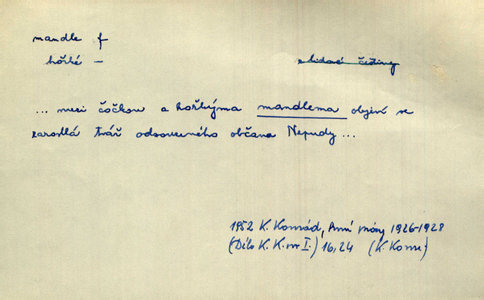 mandle f
hořké –
z lidové češtiny
... mezi čočkou a hořkýma mandlema objeví se
zarostlá tvář odsouzeného občana Nepudy ...
1952 K. Konrád, 1926–1928
(Dílo K. K. sv I.) 16, 24 (K. Konr.)